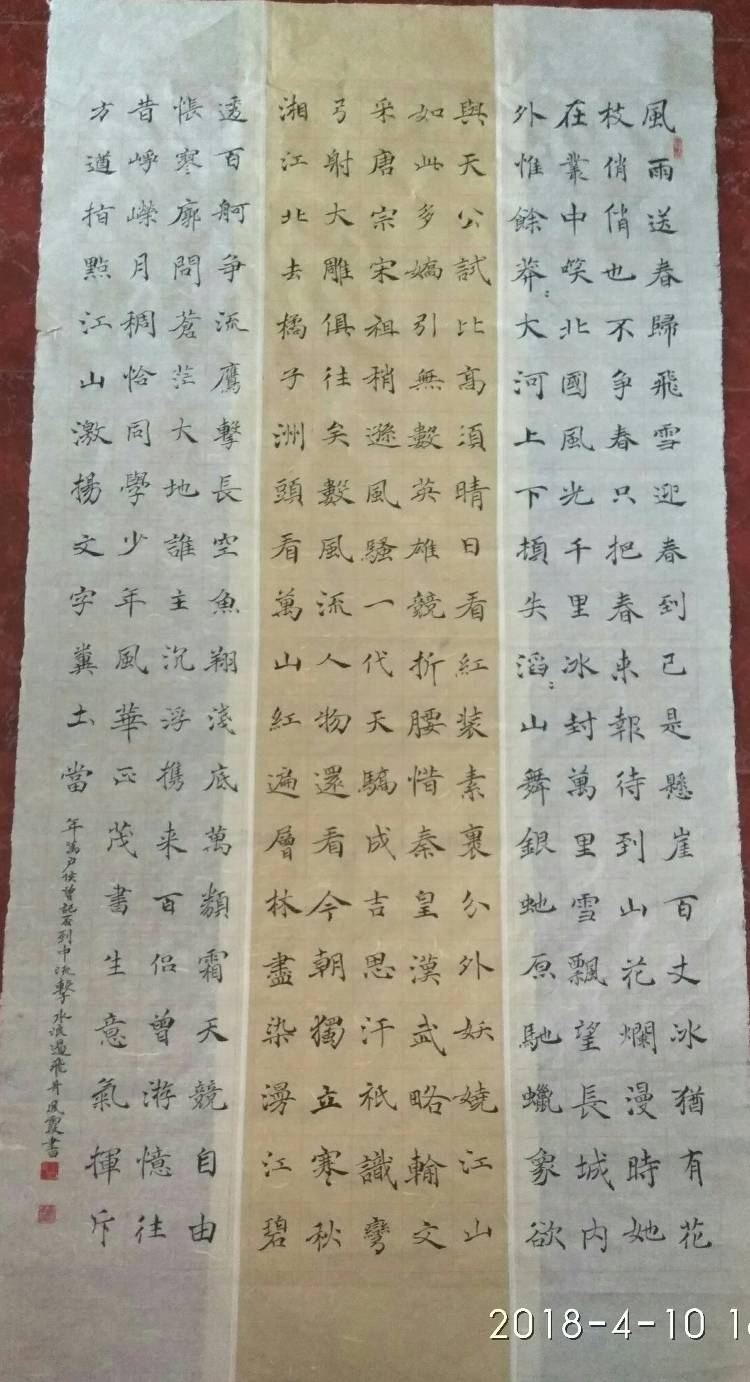 風雨送春歸飛雪迎春到已是懸崖百丈冰猶有花
枝俏俏也不争春只把春来報待到山花爛漫時她
在叢中笑北國風光千里冰封萬里雪飄望長城内
外惟餘莽〻大河上下頓失滔〻山舞銀虵原馳蠟象欲
與天公試比高須晴日看紅装素裹分外妖嬈江山
如此多嬌引無數英雄競折腰惜秦皇漢武略輸文
采唐宗宋祖稍遜風騷一代天驕成吉思汗祇識彎
弓射大雕俱往矣數風流人物還看今朝獨立寒秋
湘江北去橘子洲頭看萬山紅遍層林盡染漫江碧
透百舸争流鷹擊長空魚翔淺底萬類霜天競自由
悵寥廓問蒼茫大地誰主沉浮携来百侣曾游憶往
昔崢嶸月稠恰同學少年風華正茂書生意氣揮斥
方遒指點江山激揚文字糞土當
年萬户侯曾記否到中流擊水浪遏飛舟 霞書
2018-4-10